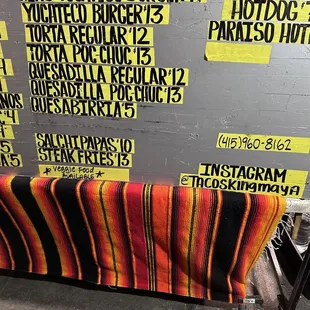 YUCHTECO BURGER $13
TORTA REGULAR $12
TORTA POC-CHUC $13
QUESADILLA REGULAR $12
QUESADILLA POC CHUC $13
QUESABIRRIA $5
SALCHIPAPAS $10
STEAK FRIES $13
VEGGIE FOOD
HOTDOG
PARAISO HOT
(415)960-8162
INSTAGRAM
@TACOSKINGMAYA